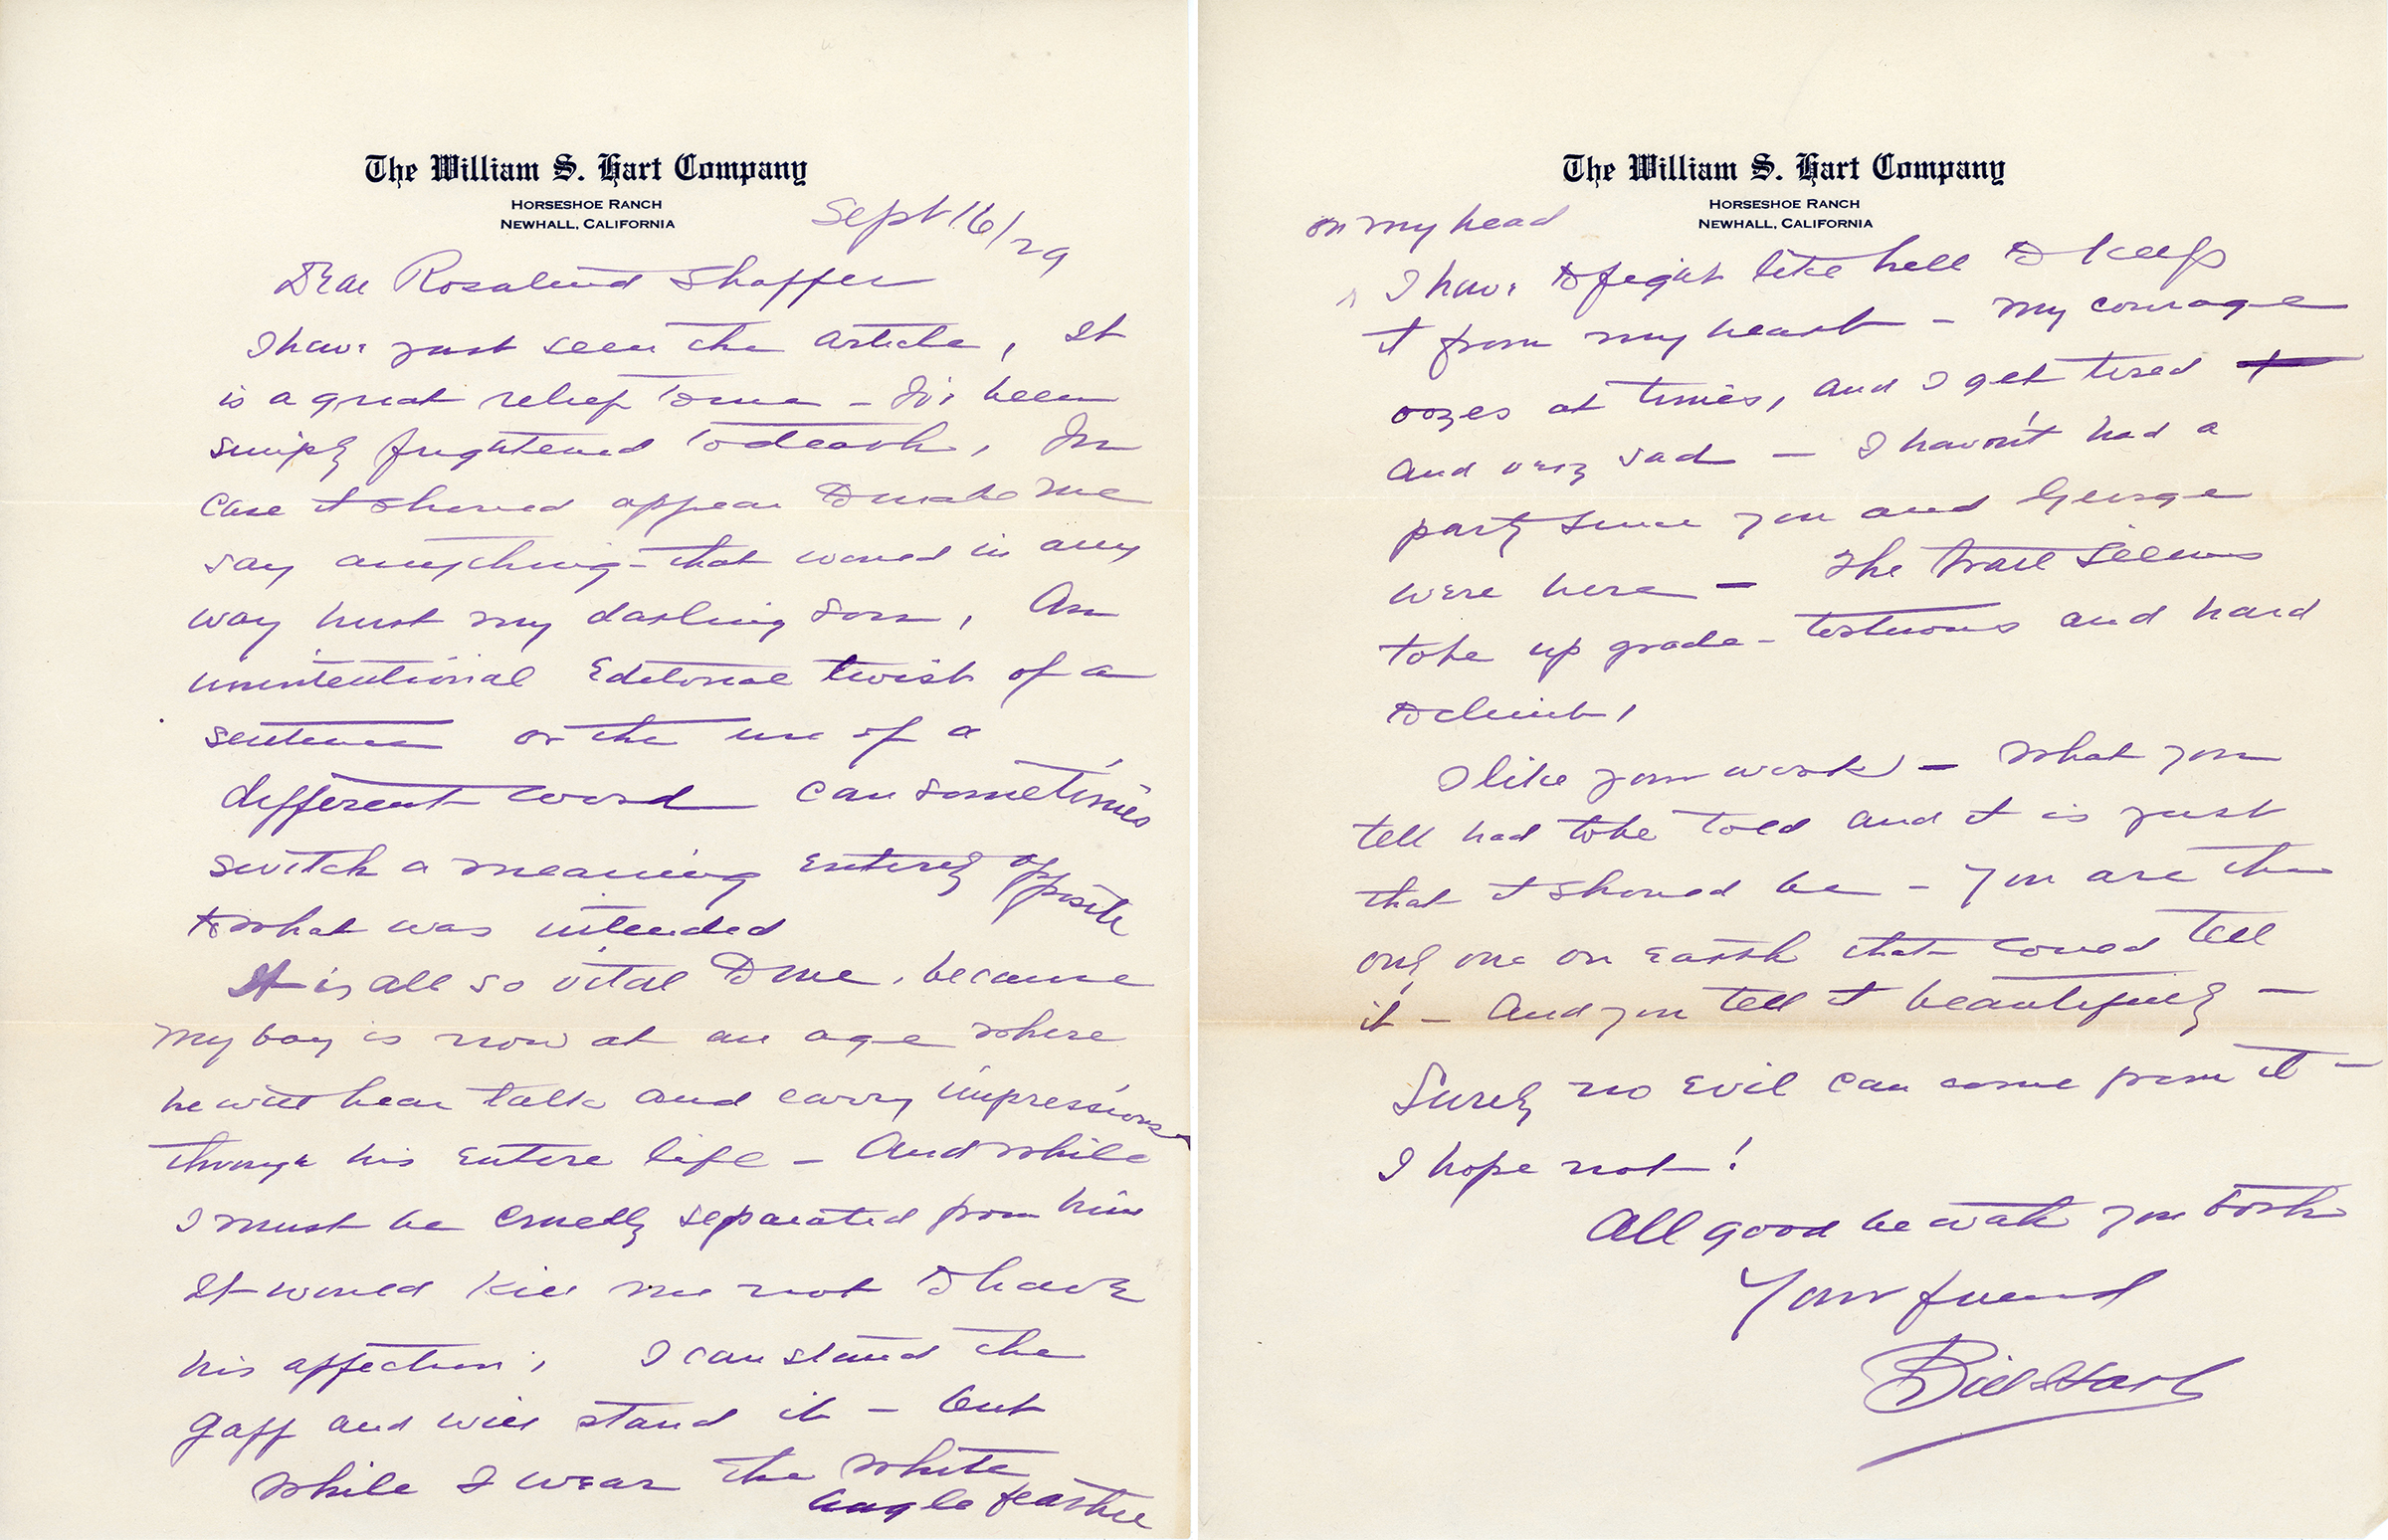 The William S. Hart Company
HORSESHOE RANCH
NEWHALL, CALIFORNIA
Sept 16/29
Dear Rosalind Shaffer
I have just seen the article, It
is a great relief to me - I've been
simply frightened to death, In
case it should appear to make me
say anything - that would in any
way hurt my darling son, An
unintentional Editorial twist of a
sentence or the use of a
different word can sometimes
switch a meaning entirely opposite
to what was intended
It is all so vital to me, because
my boy is now at an age where
he will hear talk and carry impressions
through his entire life - And while
I must be cruelly separated from him
It would kill me not to have
his affection, I can stand the
gaff and will stand it - but
while I wear the white
eagle feather
The William S. Hart Company
HORSESHOE RANCH
NEWHALL, CALIFORNIA
on my head
I have to fight like hell to keep
it from my heart - my courage
oozes at times, and I get tired
and very sad - I haven't had a
party since you and George
were here - The trail seems
to be up grade - tortuous and hard
to climb,
I like your work - what you
tell had to be told and it is just
that it should be - You are the
only one on earth that could tell
it - And you tell it beautifully -
Surely no evil can come from it -
I hope not!
All good be with you both
Your friend
Bill Hart